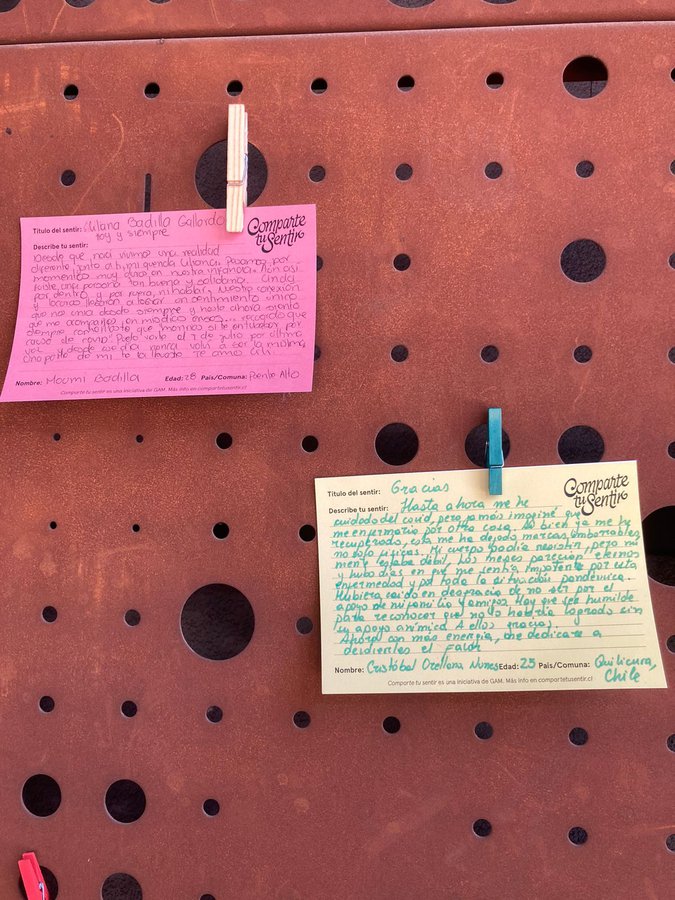 Título del sentir: Liliana Badilla Gallardo
hoy y siempre
Comparte
tu Sentir
Describe tu sentir:
Desde que nací vivimos una realidad
diferente, junto a ti mi querida Liliana. Pasamos por
momentos muy duros en nuestra infancia. Aún así
fuiste una persona tan buena y solidaria. Linda
por dentro y por fuera, ni hablar, Nuestra conexión
y locuras llegaron a lograr un sentimiento único
que nos unía desde siempre y hasta ahora siento
que me acompañas en miedos
siempre que mentiras si te entubaban por
causa de covid. Pude verte el 7 de julio por última
vez desde ese día nunca volví a ser la misma,
una parte de mi te la llevaste. Te amo Lili.
Nombre: Noemi Badilla Edad: 28 País/Comuna: Puente Alto
Comparte tu sentir es una iniciativa de GAM. Más info en compartetusentir.cl
Título del sentir: Gracias
Comparte
tu Sentir
Describe tu sentir: Hasta ahora me he
cuidado del covid, pero jamás imaginé que
me enfermaría por otra cosa. Si bien ya me he
recuperado, esta me ha dejado marcas imborrables,
no solo físicas. Mi cuerpo podía resistir, pero mi
mente estaba débil. Los meses parecían eternos
y hubo días en que me sentía impotente por esta
enfermedad y por toda la situación pandémica...
Hubiera caído en desgracia de no ser por el
apoyo de mi familia y amigos. Hay que ser humilde
para reconocer que no lo habría logrado sin
su apoyo anímico. A ellos gracias.
Ahora con más energía, me dedicaré a
devolverles el favor
Nombre: Cristóbal Orellana Nunes Edad: 25 País/Comuna: Quilicura,
Chile
Comparte tu sentir es una iniciativa de GAM. Más info en compartetusentir.cl